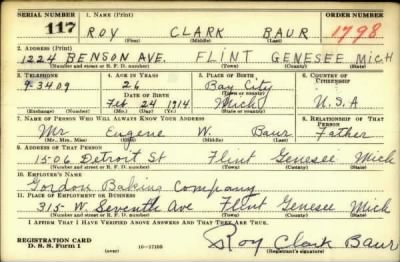 SERIAL NUMBER 1. NAME (Print) ORDER NUMBER
117 ROY CLARK BAUR 1798
(First) (Middle) (Last)
2. ADDRESS (Print)
1224 BENSON AVE. FLINT GENESEE MICH
(Number and street or R. F. D. number) (Town) (County) (State)
3. TELEPHONE 4. AGE IN YEARS 5. PLACE OF BIRTH 6. COUNTRY OF CITIZENSHIP
9-3409 26 Bay City
DATE OF BIRTH (Town or county)
Feb 24 1914 Mich U.S.A
(Exchange) (Number) (Mo.) (Day) (Yr.) (State or country)
7. NAME OF PERSON WHO WILL ALWAYS KNOW YOUR ADDRESS 8. RELATIONSHIP OF THAT PERSON
Mr Eugene W. Baur Father
(Mr., Mrs., Miss) (First) (Middle) (Last)
9. ADDRESS OF THAT PERSON
1506 Detroit St Flint Genesee Mich
(Number and street or R. F. D. number) (Town) (County) (State)
10. EMPLOYER'S NAME
Gordon Baking Company
11. PLACE OF EMPLOYMENT OR BUSINESS
315 W. Seventh Ave Flint Genesee Mich
(Number and street or R. F. D. number) (Town) (County) (State)
I AFFIRM THAT I HAVE VERIFIED ABOVE ANSWERS AND THAT THEY ARE TRUE.
REGISTRATION CARD
D. S. S. Form 1 16-17105 Roy Clark Baur
(Registrant's signature)